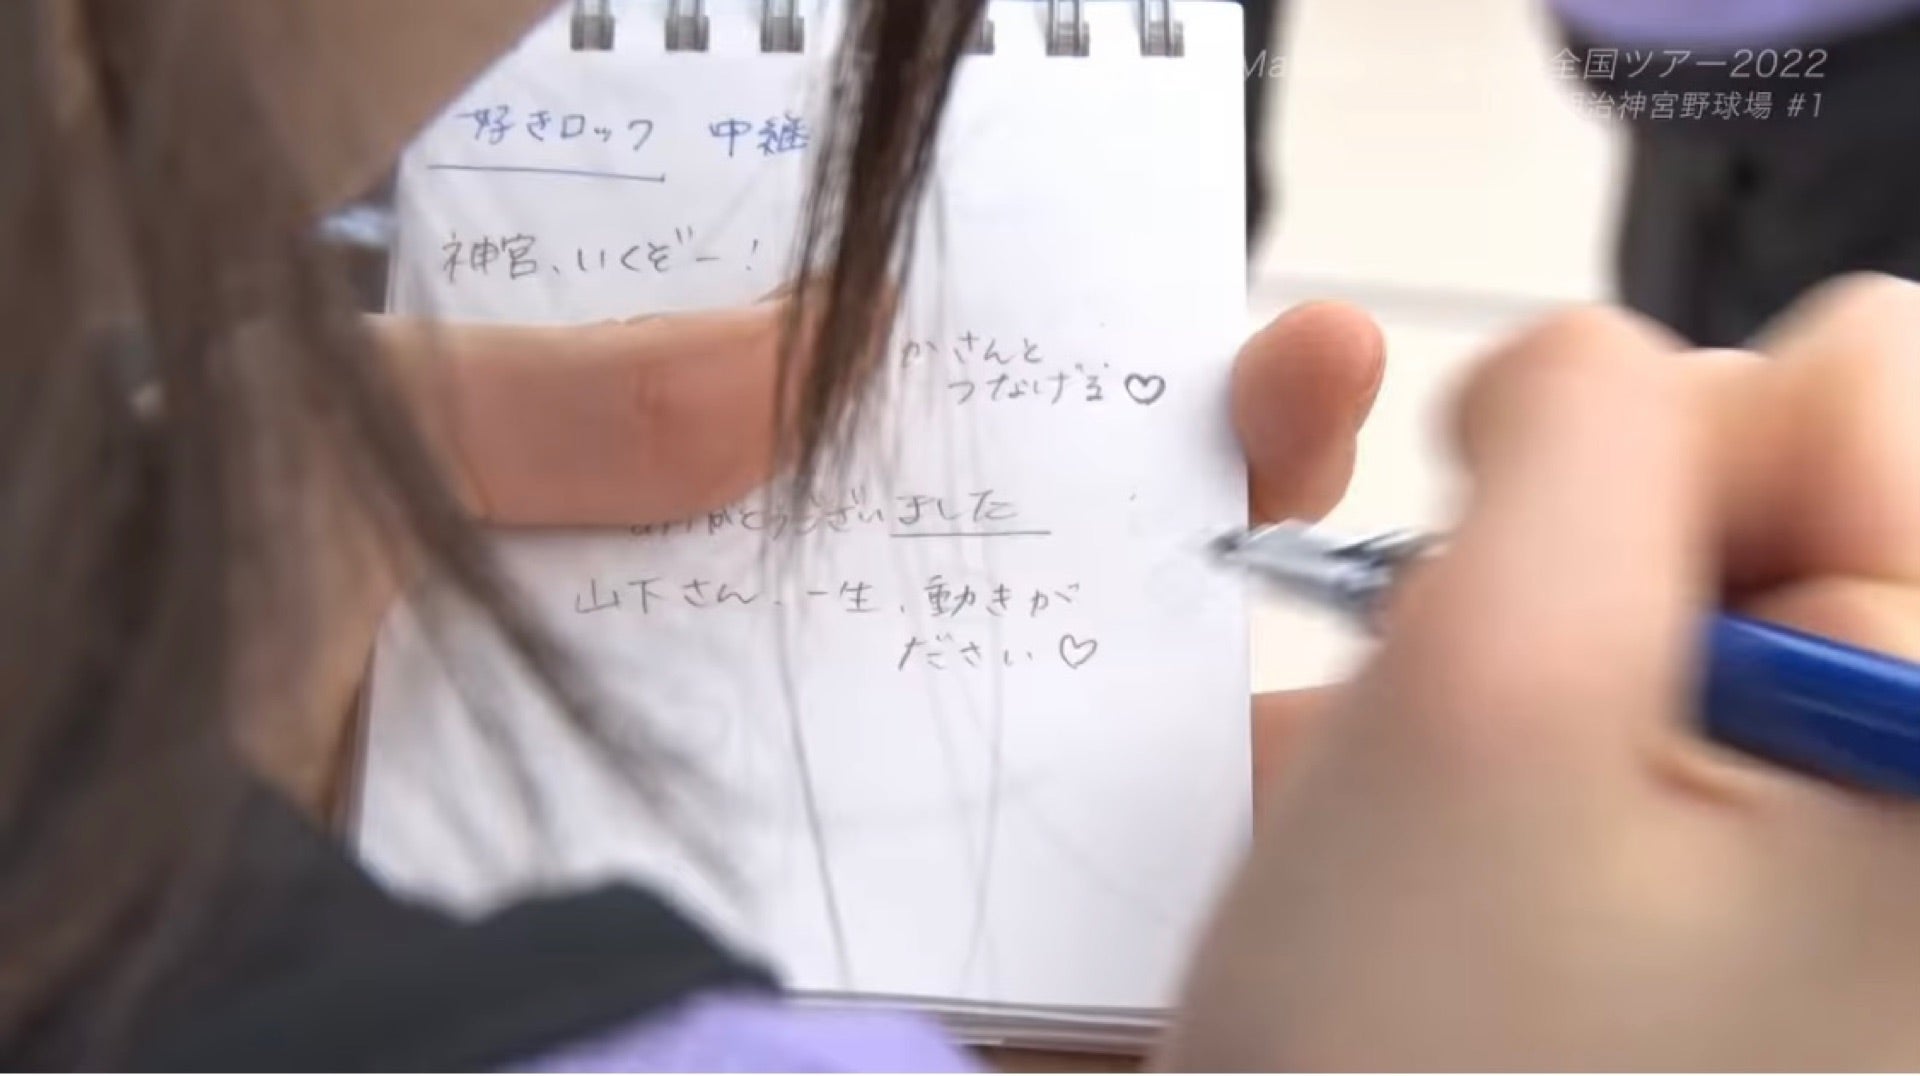 全国ツアー2022
治神宮野球場 #1
好きロック 中継
神宮、いくぞー!
かさんと
つなげる♡
ありがとうございました
山下さん、一生、動きが
ださい♡